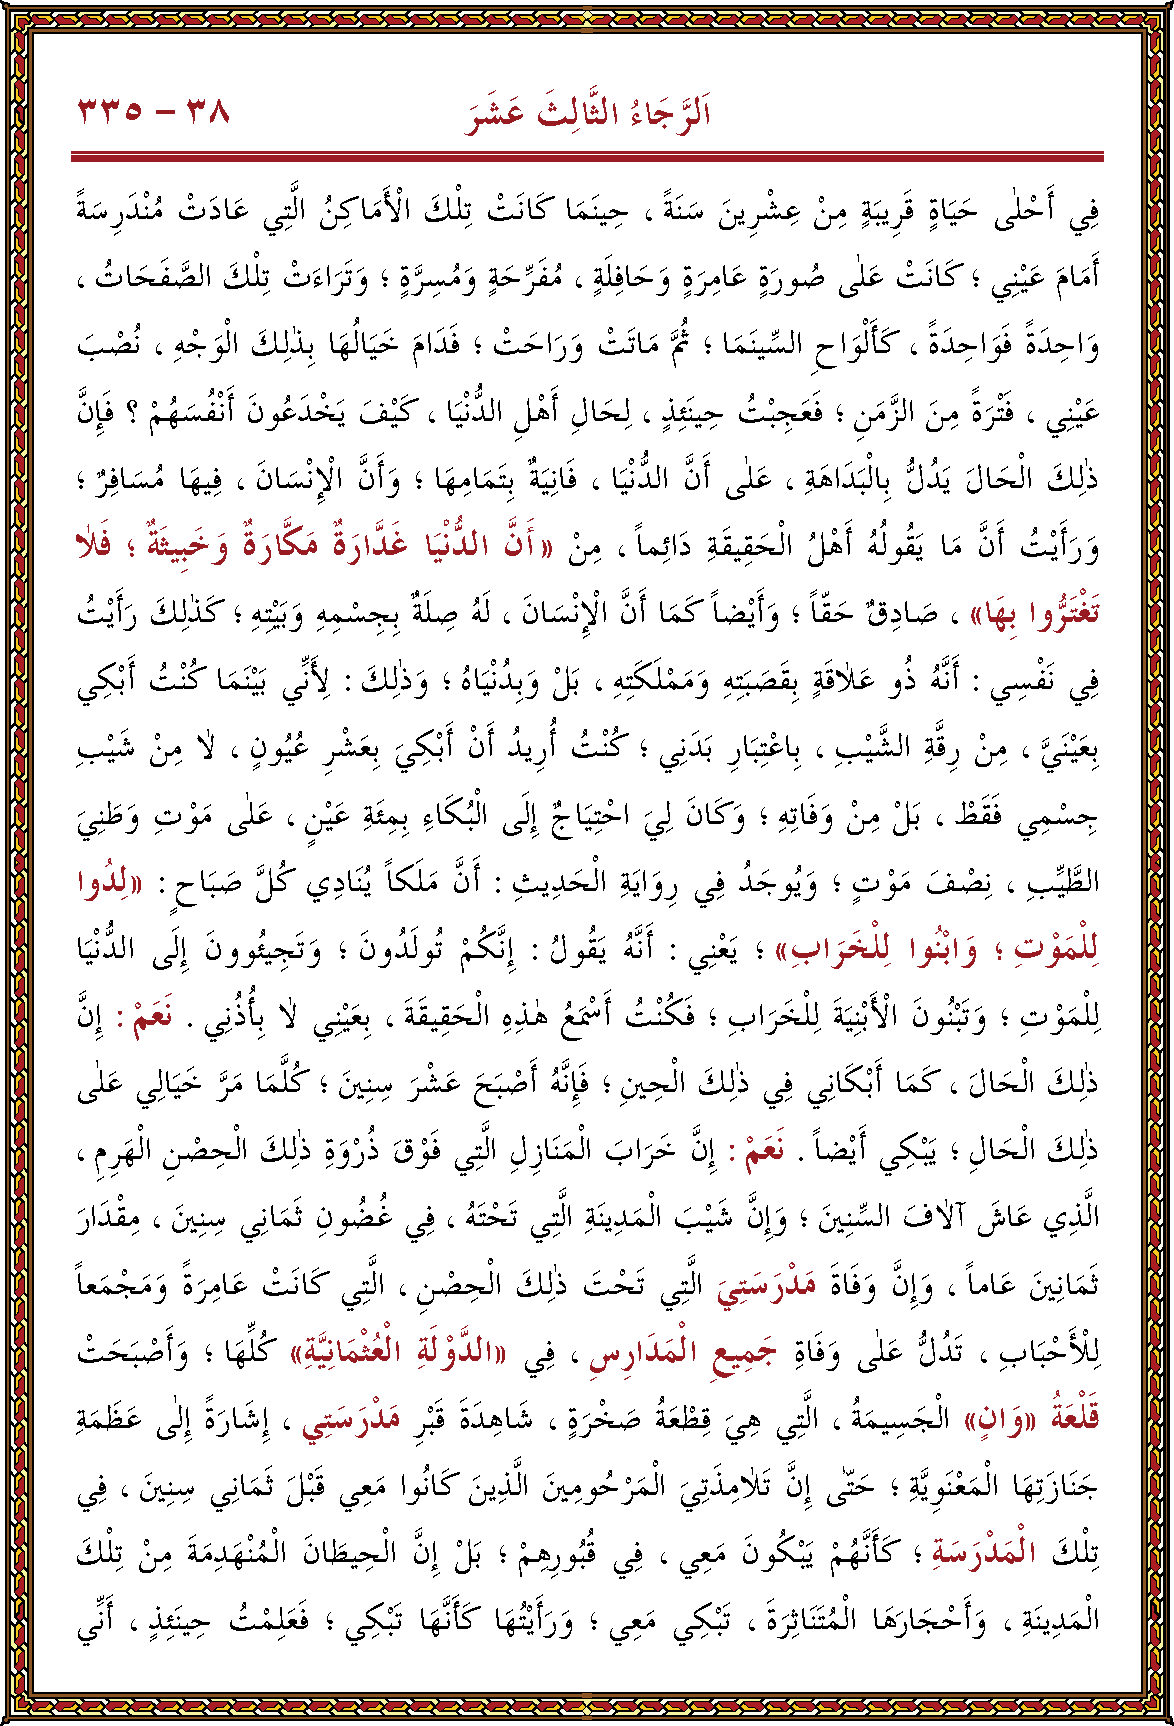 اَلرَّجَاءُ الثَّالِثَ عَشَرَ ٣٨ – ٣٣٥
فِي أَحْلٰى حَيَاةٍ قَرِيبَةٍ مِنْ عِشْرِينَ سَنَةً ، حِينَمَا كَانَتْ تِلْكَ الْأَمَاكِنُ الَّتِي عَادَتْ مُنْدَرِسَةً
أَمَامَ عَيْنِي ؛ كَانَتْ عَلٰى صُورَةٍ عَامِرَةٍ وَحَافِلَةٍ ، مُفَرِّحَةٍ وَمُسِرَّةٍ ؛ وَتَرَاءَتْ تِلْكَ الصَّفَحَاتُ ،
وَاحِدَةً فَوَاحِدَةً ، كَأَلْوَاحِ السِّينَمَا ؛ ثُمَّ مَاتَتْ وَرَاحَتْ ؛ فَدَامَ خَيَالُهَا بِذٰلِكَ الْوَجْهِ ، نُصْبَ
عَيْنِي ، فَتْرَةً مِنَ الزَّمَنِ ؛ فَعَجِبْتُ حِينَئِذٍ ، لِحَالِ أَهْلِ الدُّنْيَا ، كَيْفَ يَخْدَعُونَ أَنْفُسَهُمْ ؟ فَإِنَّ
ذٰلِكَ الْحَالَ يَدُلُّ بِالْبَدَاهَةِ ، عَلٰى أَنَّ الدُّنْيَا ، فَانِيَةٌ بِتَمَامِهَا ؛ وَأَنَّ الْإِنْسَانَ ، فِيهَا مُسَافِرٌ ؛
وَرَأَيْتُ أَنَّ مَا يَقُولُهُ أَهْلُ الْحَقِيقَةِ دَائِماً ، مِنْ «أَنَّ الدُّنْيَا غَدَّارَةٌ مَكَّارَةٌ وَخَبِيثَةٌ ؛ فَلاٰ
تَغْتَرُّوا بِهَا» ، صَادِقٌ حَقّاً ؛ وَأَيْضاً كَمَا أَنَّ الْإِنْسَانَ ، لَهُ صِلَةٌ بِجِسْمِهِ وَبَيْتِهِ ؛ كَذٰلِكَ رَأَيْتُ
فِي نَفْسِي : أَنَّهُ ذُو عَلاٰقَةٍ بِقَصَبَتِهِ وَمَمْلَكَتِهِ ، بَلْ وَبِدُنْيَاهُ ؛ وَذٰلِكَ : لِأَنِّي بَيْنَمَا كُنْتُ أَبْكِي
بِعَيْنَيَّ ، مِنْ رِقَّةِ الشَّيْبِ ، بِاعْتِبَارِ بَدَنِي ؛ كُنْتُ أُرِيدُ أَنْ أَبْكِيَ بِعَشْرِ عُيُونٍ ، لاٰ مِنْ شَيْبِ
جِسْمِي فَقَطْ ، بَلْ مِنْ وَفَاتِهِ ؛ وَكَانَ لِيَ احْتِيَاجٌ إِلَى الْبُكَاءِ بِمِئَةِ عَيْنٍ ، عَلٰى مَوْتِ وَطَنِيَ
الطَّيِّبِ ، نِصْفَ مَوْتٍ ؛ وَيُوجَدُ فِي رِوَايَةِ الْحَدِيثِ : أَنَّ مَلَكاً يُنَادِي كُلَّ صَبَاحٍ : «لِدُوا
لِلْمَوْتِ ؛ وَابْنُوا لِلْخَرَابِ» ؛ يَعْنِي : أَنَّهُ يَقُولُ : إِنَّكُمْ تُولَدُونَ ؛ وَتَجِيئُوونَ إِلَى الدُّنْيَا
لِلْمَوْتِ ؛ وَتَبْنُونَ الْأَبْنِيَةَ لِلْخَرَابِ ؛ فَكُنْتُ أَسْمَعُ هٰذِهِ الْحَقِيقَةَ ، بِعَيْنِي لاٰ بِأُذُنِي . نَعَمْ : إِنَّ
ذٰلِكَ الْحَالَ ، كَمَا أَبْكَانِي فِي ذٰلِكَ الْحِينِ ؛ فَإِنَّهُ أَصْبَحَ عَشْرَ سِنِينَ ؛ كُلَّمَا مَرَّ خَيَالِي عَلٰى
ذٰلِكَ الْحَالِ ؛ يَبْكِي أَيْضاً . نَعَمْ : إِنَّ خَرَابَ الْمَنَازِلِ الَّتِي فَوْقَ ذُرْوَةِ ذٰلِكَ الْحِصْنِ الْهَرِمِ ،
الَّذِي عَاشَ آلاٰفَ السِّنِينَ ؛ وَإِنَّ شَيْبَ الْمَدِينَةِ الَّتِي تَحْتَهُ ، فِي غُضُونِ ثَمَانِي سِنِينَ ، مِقْدَارَ
ثَمَانِينَ عَاماً ، وَإِنَّ وَفَاةَ مَدْرَسَتِيَ الَّتِي تَحْتَ ذٰلِكَ الْحِصْنِ ، الَّتِي كَانَتْ عَامِرَةً وَمَجْمَعاً
لِلْأَحْبَابِ ، تَدُلُّ عَلٰى وَفَاةِ جَمِيعِ الْمَدَارِسِ ، فِي «الدَّوْلَةِ الْعُثْمَانِيَّةِ» كُلِّهَا ؛ وَأَصْبَحَتْ
قَلْعَةُ «وَانٍ» الْجَسِيمَةُ ، الَّتِي هِيَ قِطْعَةُ صَخْرَةٍ ، شَاهِدَةَ قَبْرِ مَدْرَسَتِي ، إِشَارَةً إِلٰى عَظَمَةِ
جَنَازَتِهَا الْمَعْنَوِيَّةِ ؛ حَتّٰى إِنَّ تَلاٰمِذَتِيَ الْمَرْحُومِينَ الَّذِينَ كَانُوا مَعِي قَبْلَ ثَمَانِي سِنِينَ ، فِي
تِلْكَ الْمَدْرَسَةِ ؛ كَأَنَّهُمْ يَبْكُونَ مَعِي ، فِي قُبُورِهِمْ ؛ بَلْ إِنَّ الْحِيطَانَ الْمُنْهَدِمَةَ مِنْ تِلْكَ
الْمَدِينَةِ ، وَأَحْجَارَهَا الْمُتَنَاثِرَةَ ، تَبْكِي مَعِي ؛ وَرَأَيْتُهَا كَأَنَّهَا تَبْكِي ؛ فَعَلِمْتُ حِينَئِذٍ ، أَنِّي